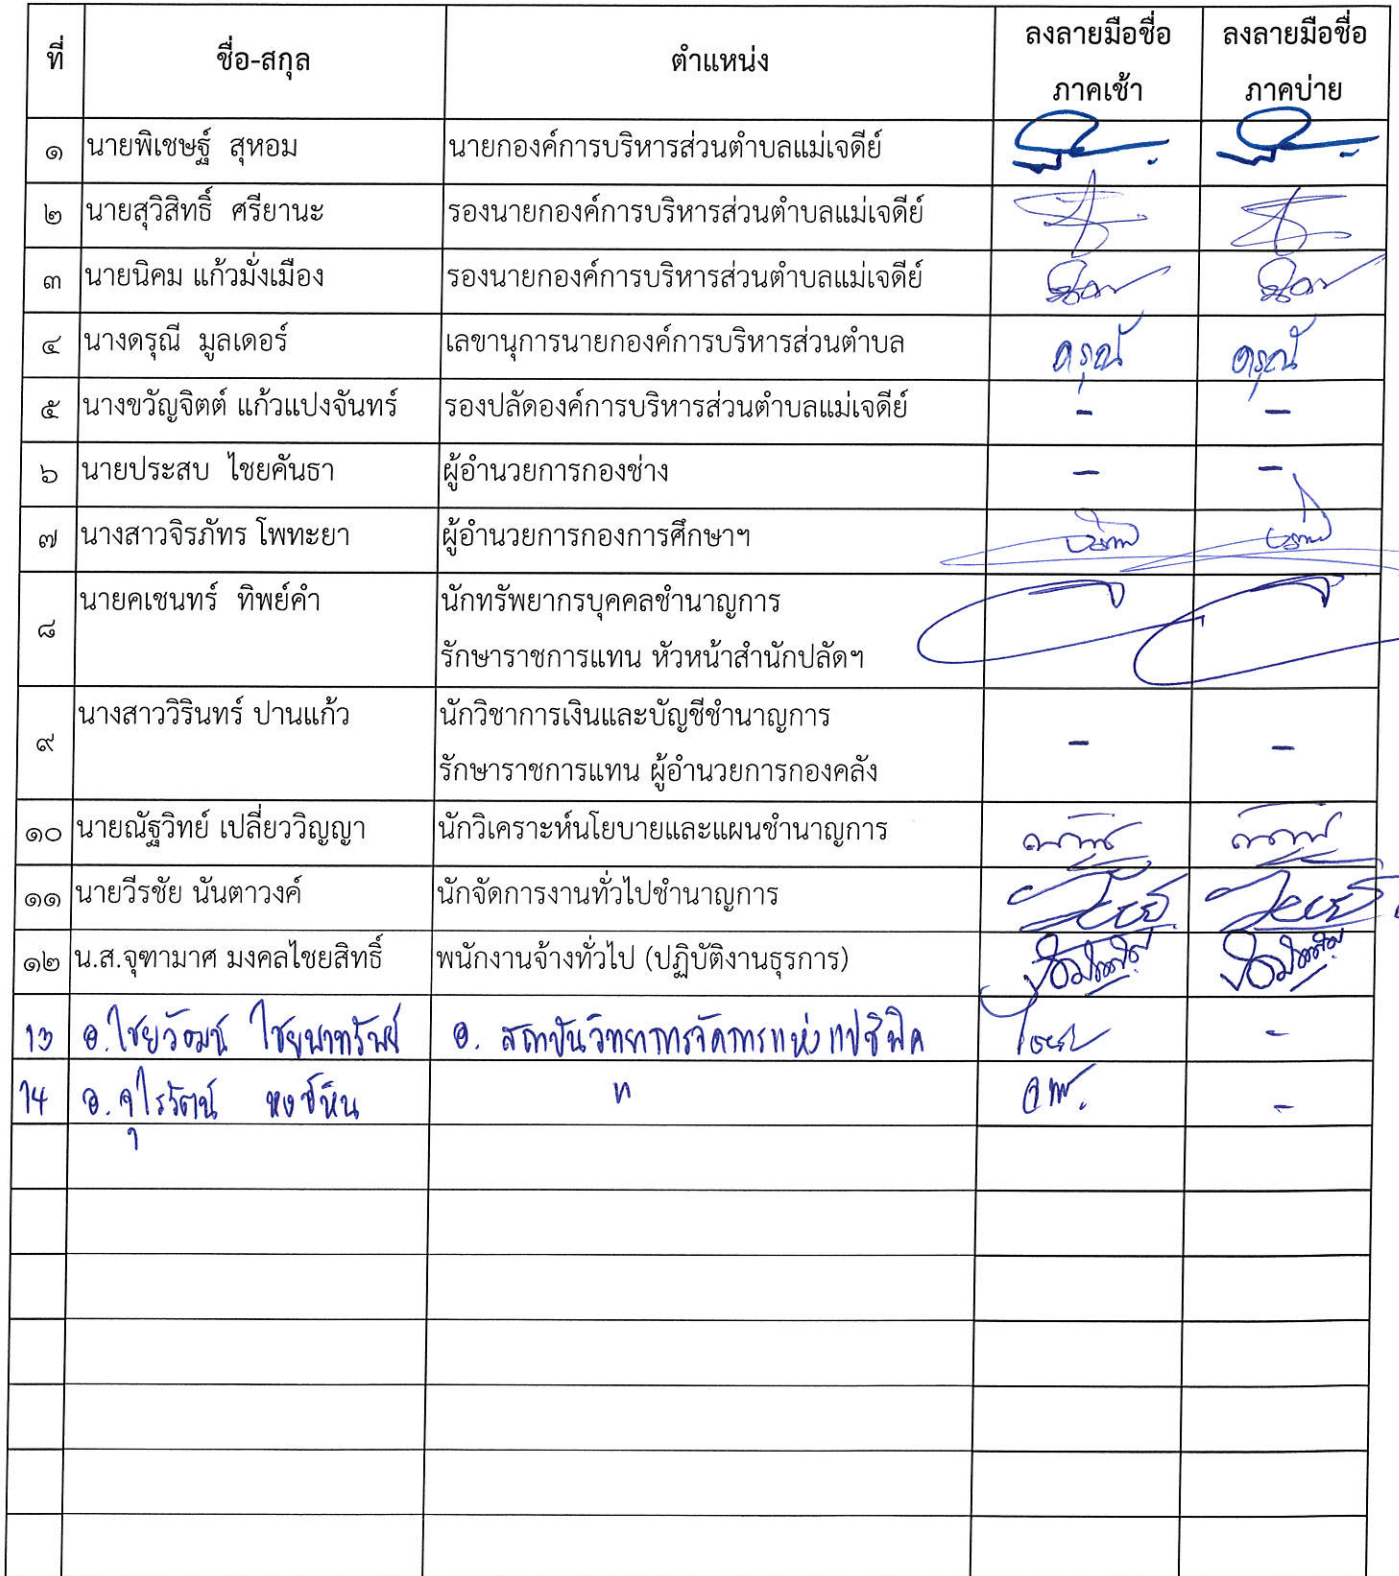 ที่ ชื่อ-สกุล ตำแหน่ง ลงลายมือชื่อ ภาคเช้า ลงลายมือชื่อ ภาคบ่าย
๑ นายพิเชษฐ์ สุหอม นายกองค์การบริหารส่วนตำบลแม่เจดีย์
๒ นายสุวิสิทธิ์ ศรียานะ รองนายกองค์การบริหารส่วนตำบลแม่เจดีย์
๓ นายนิคม แก้วมั่งเมือง รองนายกองค์การบริหารส่วนตำบลแม่เจดีย์
๔ นางดรุณี มูลเดอร์ เลขานุการนายกองค์การบริหารส่วนตำบล ดรุณี ดรุณี
๕ นางขวัญจิตต์ แก้วแปงจันทร์ รองปลัดองค์การบริหารส่วนตำบลแม่เจดีย์ - -
๖ นายประสบ ไชยคันธา ผู้อำนวยการกองช่าง - -
๗ นางสาวจิรภัทร โพทะยา ผู้อำนวยการกองการศึกษาฯ
๘ นายคเชนทร์ ทิพย์คำ นักทรัพยากรบุคคลชำนาญการ
รักษาราชการแทน หัวหน้าสำนักปลัดฯ
๙ นางสาววิรินทร์ ปานแก้ว นักวิชาการเงินและบัญชีชำนาญการ - -
รักษาราชการแทน ผู้อำนวยการกองคลัง
๑๐ นายณัฐวิทย์ เปลี่ยววิญญา นักวิเคราะห์นโยบายและแผนชำนาญการ
๑๑ นายวีรชัย นันตาวงค์ นักจัดการงานทั่วไปชำนาญการ
๑๒ น.ส.จุฑามาศ มงคลไชยสิทธิ์ พนักงานจ้างทั่วไป (ปฏิบัติงานธุรการ)
13 อ.ไชยวัฒน์ อ. สถาบันวิทยาการจัดการแห่งแปซิฟิค -
14 อ.จุไรรัตน์ " -